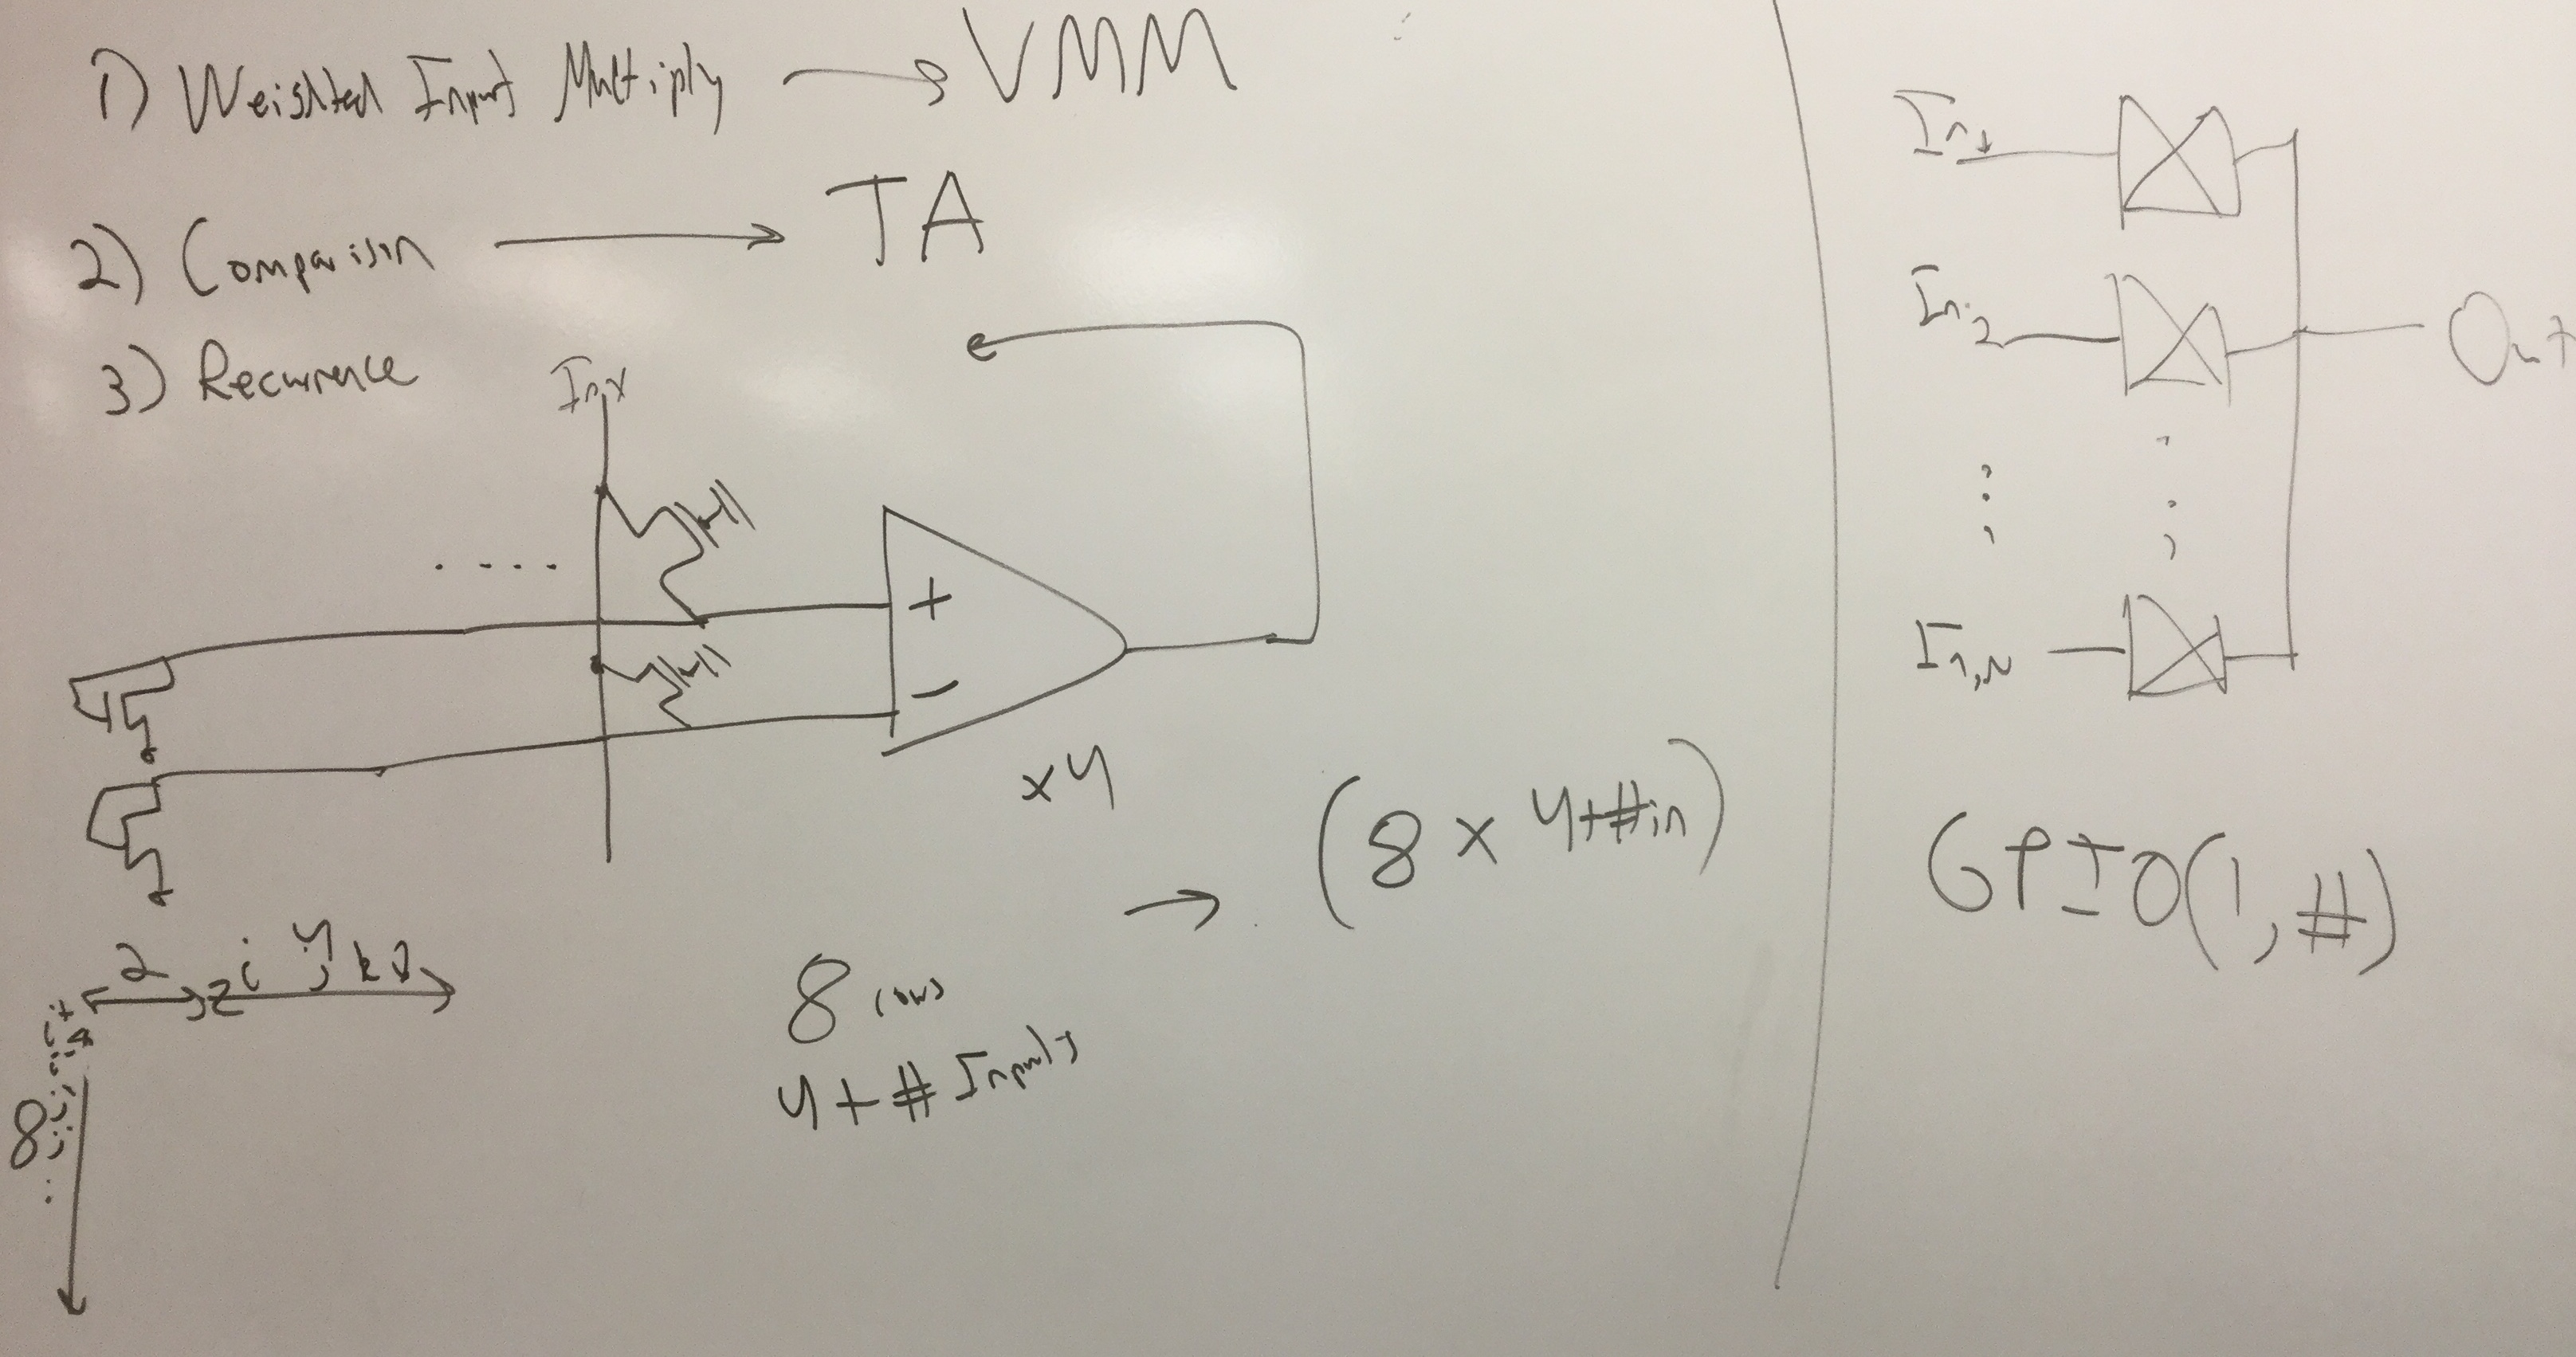 1) Weighted Input Multiply → VMM
2) Comparison → TA
3) Recurrence
Inx
+
-
x4
→ (8 x 4+#in)
8 rows
4+# Inputs
2
i j k l
8
In1
In2
In,N
Out
GPIO(1,#)